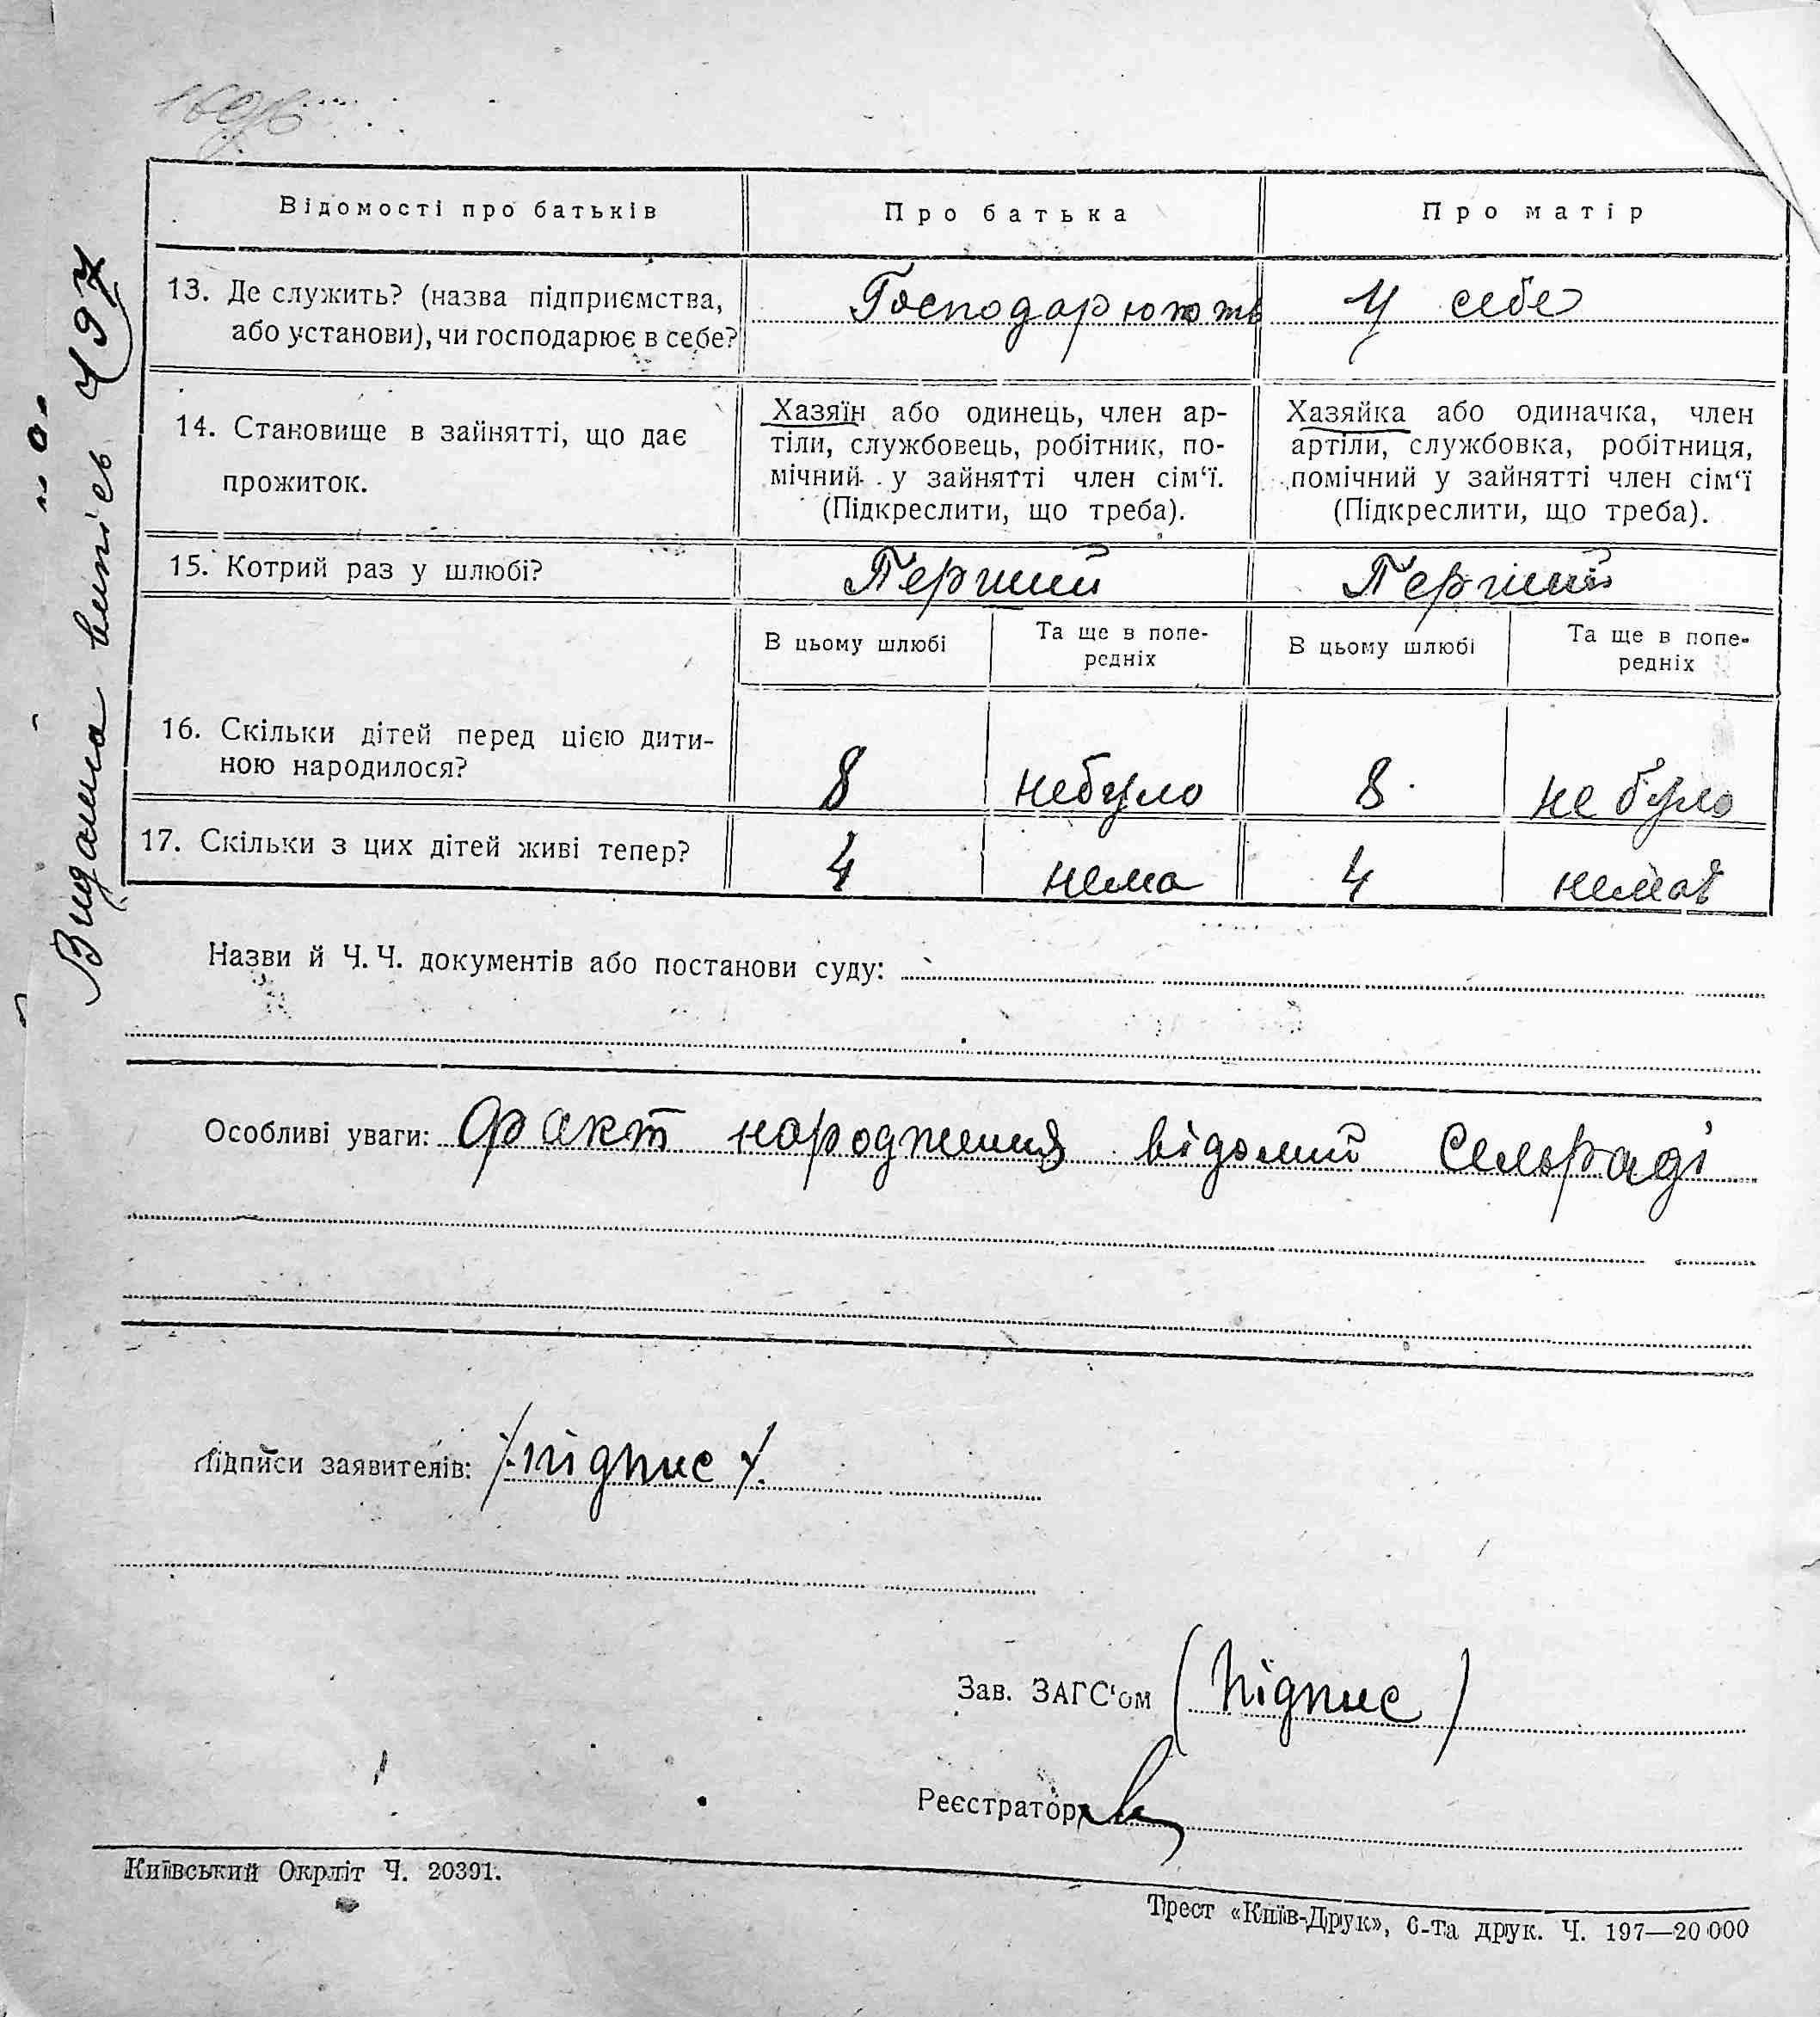 Відомості про батьків
Про батька
Про матір
13. Де служить? (назва підприємства,
або установи), чи господарює в себе?
Господарюють
У себе
14. Становище в зайнятті, що дає
прожиток.
Хазяїн або одинець, член ар-
тіли, службовець, робітник, по-
мічний у зайнятті член сім‘ї.
(Підкреслити, що треба).
Хазяйка або одиначка, член
артіли, службовка, робітниця,
помічний у зайнятті член сім‘ї
(Підкреслити, що треба).
15. Котрий раз у шлюбі?
Перший
Перший
В цьому шлюбі
Та ще в попе-
редніх
В цьому шлюбі
Та ще в попе-
редніх
16. Скільки дітей перед цією дити-
ною народилося?
8
небуло
8
не було
17. Скільки з цих дітей живі тепер?
4
нема
4
нема
Видана випись
Назви й Ч. Ч. документів або постанови суду:
Особливі уваги: Факт народження відомий Сельраді
Підписи заявителів: /підпис/.
Зав. ЗАГС‘ом (підпис)
Реєстратор
Київський Окрліт Ч. 20391.
Трест «Київ-Друк», 6-та друк. Ч. 197—20 000